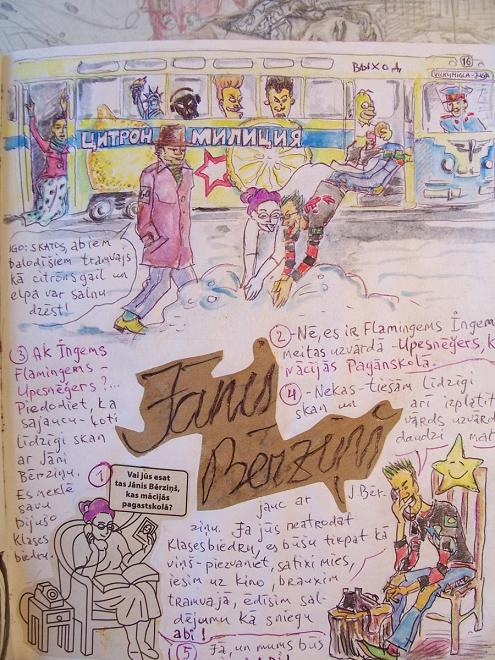 ВЫХОД
16
ЦИТРОН МИЛИЦИЯ
IGO: SKATOS, abiem
balodīšiem tramvajs
kā citrons gail un
elpa var salnu
dzēst!
② -Nē, es ir Flamingems Īngem
meitas uzvārdā -Upesnēģers, k
mācījās Pagānskolā.
③ Ak Īngems
Flamingems -
Upesnēģers ?...
Piedodiet, ka
sajaucu - ļoti
līdzīgi skan
ar Jāni
Bērziņu.
Es meklē
savu
bijušo
klases
biedru.
④ - Nekas - tiešām līdzīgi
skan un arī izplatīt
vārds uzvārd
daudzi
Jānis
Bērziņi
① Vai jūs esat
tas Jānis Bērziņš,
kas mācījās
pagastskolā?
jauc ar J. Bēr.
ziņu. Ja jūs neatrodat
Klasesbiedru, es būšu tikpat kā
viņš - piezvaniet, satiksimies,
iesim uz kino, brauksim
tramvajā, ēdīsim sal-
dējumu kā sniegu
abi!
⑤ Jā, un mums būs